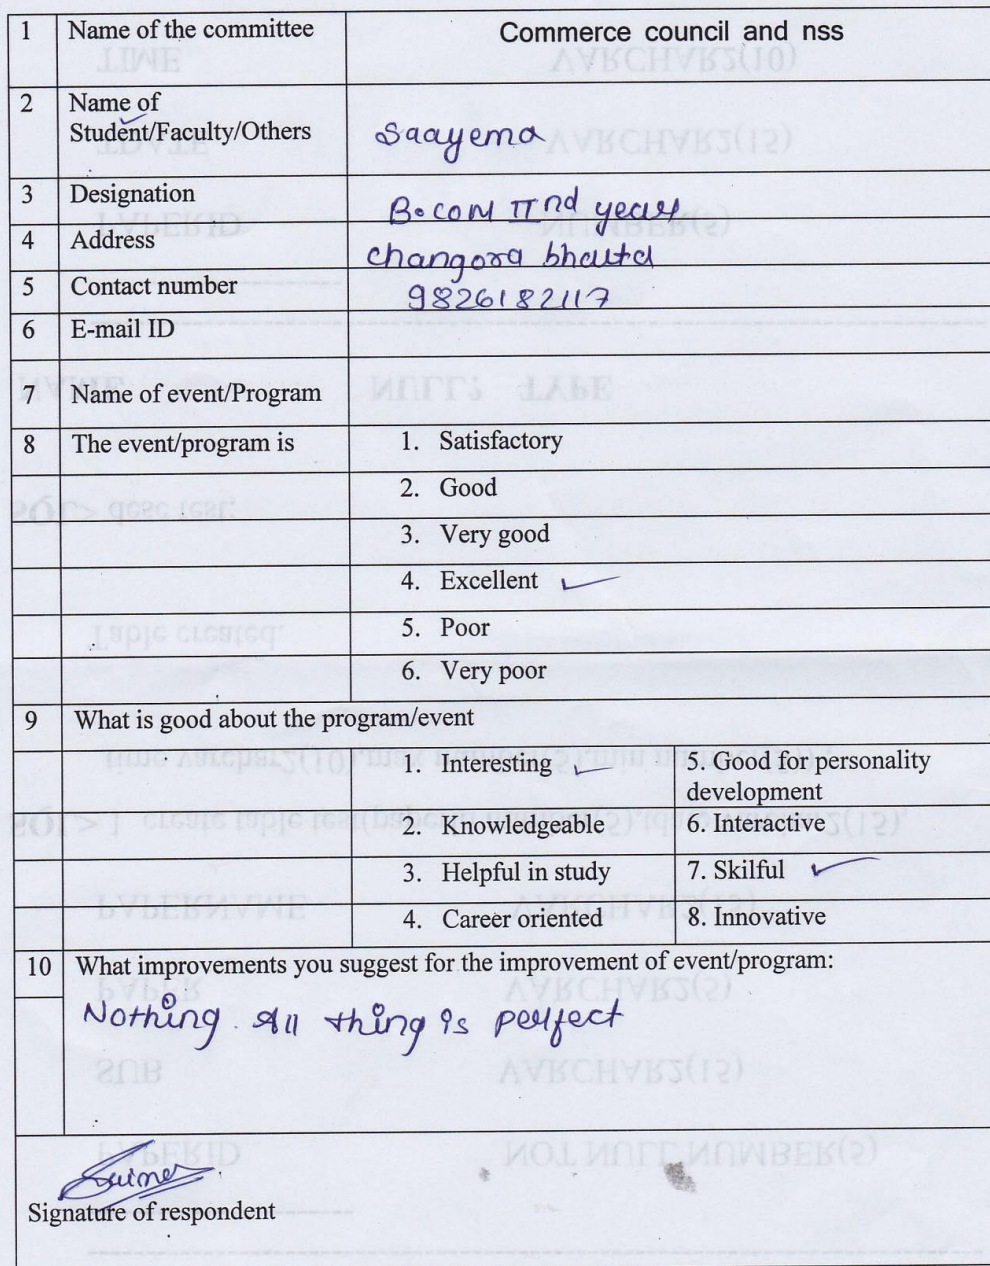 1 Name of the committee Commerce council and nss
2 Name of
Student/Faculty/Others Saayema
3 Designation B.com IInd year
4 Address changora bhata
5 Contact number 9826182117
6 E-mail ID
7 Name of event/Program
8 The event/program is 1. Satisfactory
2. Good
3. Very good
4. Excellent ✓
5. Poor
6. Very poor
9 What is good about the program/event
1. Interesting ✓ 5. Good for personality
development
2. Knowledgeable 6. Interactive
3. Helpful in study 7. Skilful ✓
4. Career oriented 8. Innovative
10 What improvements you suggest for the improvement of event/program:
Nothing All thing is perfect
Signature of respondent